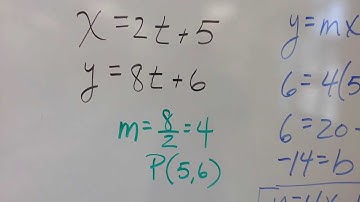 x = 2t + 5
y = 8t + 6
m = 8/2 = 4
P(5,6)
y = mx
6 = 4(5
6 = 20-
-14 = b